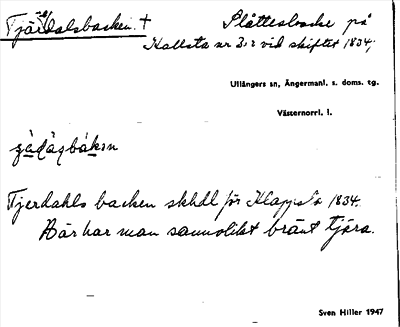 Tjärdalsbacken. + Slåttesbacke på
Kallsta nr 3:2 vid skiftet 1834;
Ullångers sn, Ångermanl. s. doms. tg.
Västernorrl. l.
Tjerdahls backen skhdl för Klapps å 1834.
Där har man sannolikt bränt tjära.
Sven Hiller 1947